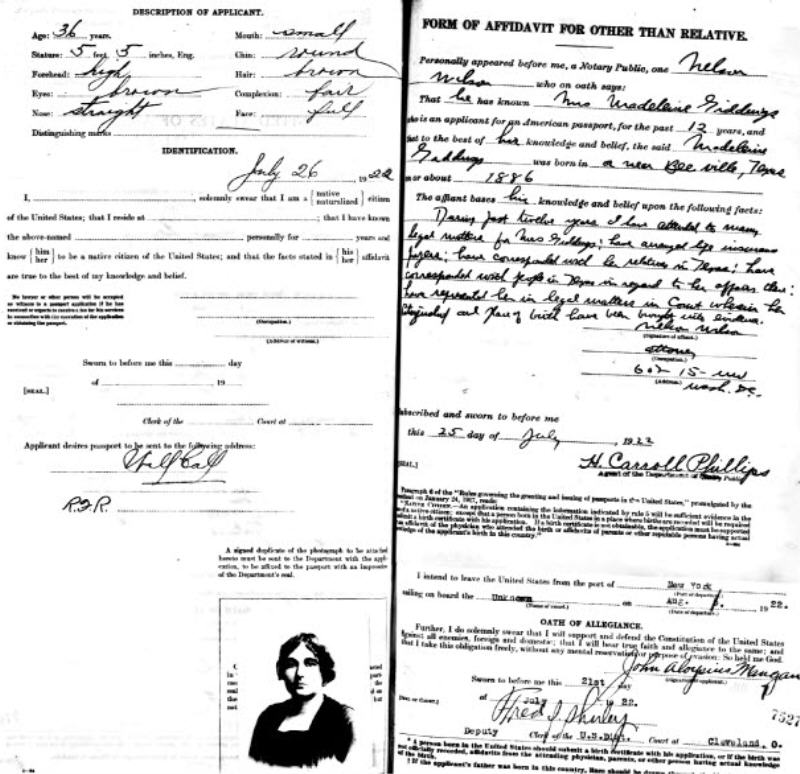 DESCRIPTION OF APPLICANT.
Age: 36 years.
Mouth: small
Stature: 5 feet 5 inches, Eng.
Chin: round
Forehead: high
Hair: brown
Eyes: brown
Complexion: fair
Nose: straight
Face: full
Distinguishing marks
IDENTIFICATION.
July 26, 1922
I, , solemnly swear that I am a {native naturalized} citizen
of the United States; that I reside at ; that I have known
the above-named personally for years and
know {him her} to be a native citizen of the United States; and that the facts stated in {his her} affidavit
are true to the best of my knowledge and belief.
No lawyer or other person will be accepted
as witness to a passport application if he has
received or expects to receive a fee for his services
in connection with the execution of the application
or obtaining the passport.
(Occupation.)
(Address of witness.)
Sworn to before me this day
of 19
[SEAL.]
Clerk of the Court at
Applicant desires passport to be sent to the following address:
Will Call
R.F.R.
A signed duplicate of the photograph to be attached
hereto must be sent to the Department with the appli-
cation, to be affixed to the passport with an impression
of the Department's seal.
FORM OF AFFIDAVIT FOR OTHER THAN RELATIVE.
Personally appeared before me, a Notary Public, one Nelson
Wilson who on oath says:
That he has known Mrs Madeleine Giddings
who is an applicant for an American passport, for the past 12 years, and
that to the best of his knowledge and belief, the said Madeleine
Giddings was born in or near Beeville, Texas
on or about 1886
The affiant bases his knowledge and belief upon the following facts:
During past twelve years I have attended to many
legal matters for Mrs Giddings; have arranged life insurance
papers; have corresponded with her relatives in Texas; have
corresponded with people in Texas in regard to her affairs there;
have represented her in legal matters in Court wherein her
citizenship and place of birth have been brought into evidence.
Nelson Wilson
(Signature of affiant.)
attorney
(Occupation.)
602 15- NW
(Address.) Wash. D.C.
Subscribed and sworn to before me
this 25 day of July, 1922
[SEAL.]
H. Carroll Phillips
Agent of the Department of
Public
Paragraph 6 of the "Rules governing the granting and issuing of passports in the United States," promulgated by the
President on January 24, 1917, reads:
"NATIVE CITIZEN.—An application containing the information indicated by rule 5 will be sufficient evidence in the
case of a native citizen; except that a person born in the United States in a place where births are recorded will be required
to submit a birth certificate with his application. If a birth certificate is not obtainable, the application must be supported
by an affidavit of the physician who attended the birth or affidavits of parents or other reputable persons having actual
knowledge of the applicant's birth in this country."
I intend to leave the United States from the port of New York
(Port of departure.)
sailing on board the Unknown on Aug. 1922.
(Name of vessel.) (Date of departure.)
OATH OF ALLEGIANCE.
Further, I do solemnly swear that I will support and defend the Constitution of the United States
against all enemies, foreign and domestic; that I will bear true faith and allegiance to the same; and
that I take this obligation freely, without any mental reservation or purpose of evasion: So help me God.
John Aloysius Mangan
(Signature of applicant.)
Sworn to before me this 21st day
of July 1922.
Fred J Shirley
7527
Deputy Clerk of the U.S.Dist. Court at Cleveland, O.
* A person born in the United States should submit a birth certificate with his application, or if the birth was
not officially recorded, affidavits from the attending physician, parents, or other person having actual knowledge
of the birth.
† If the applicant's father was born in this country,